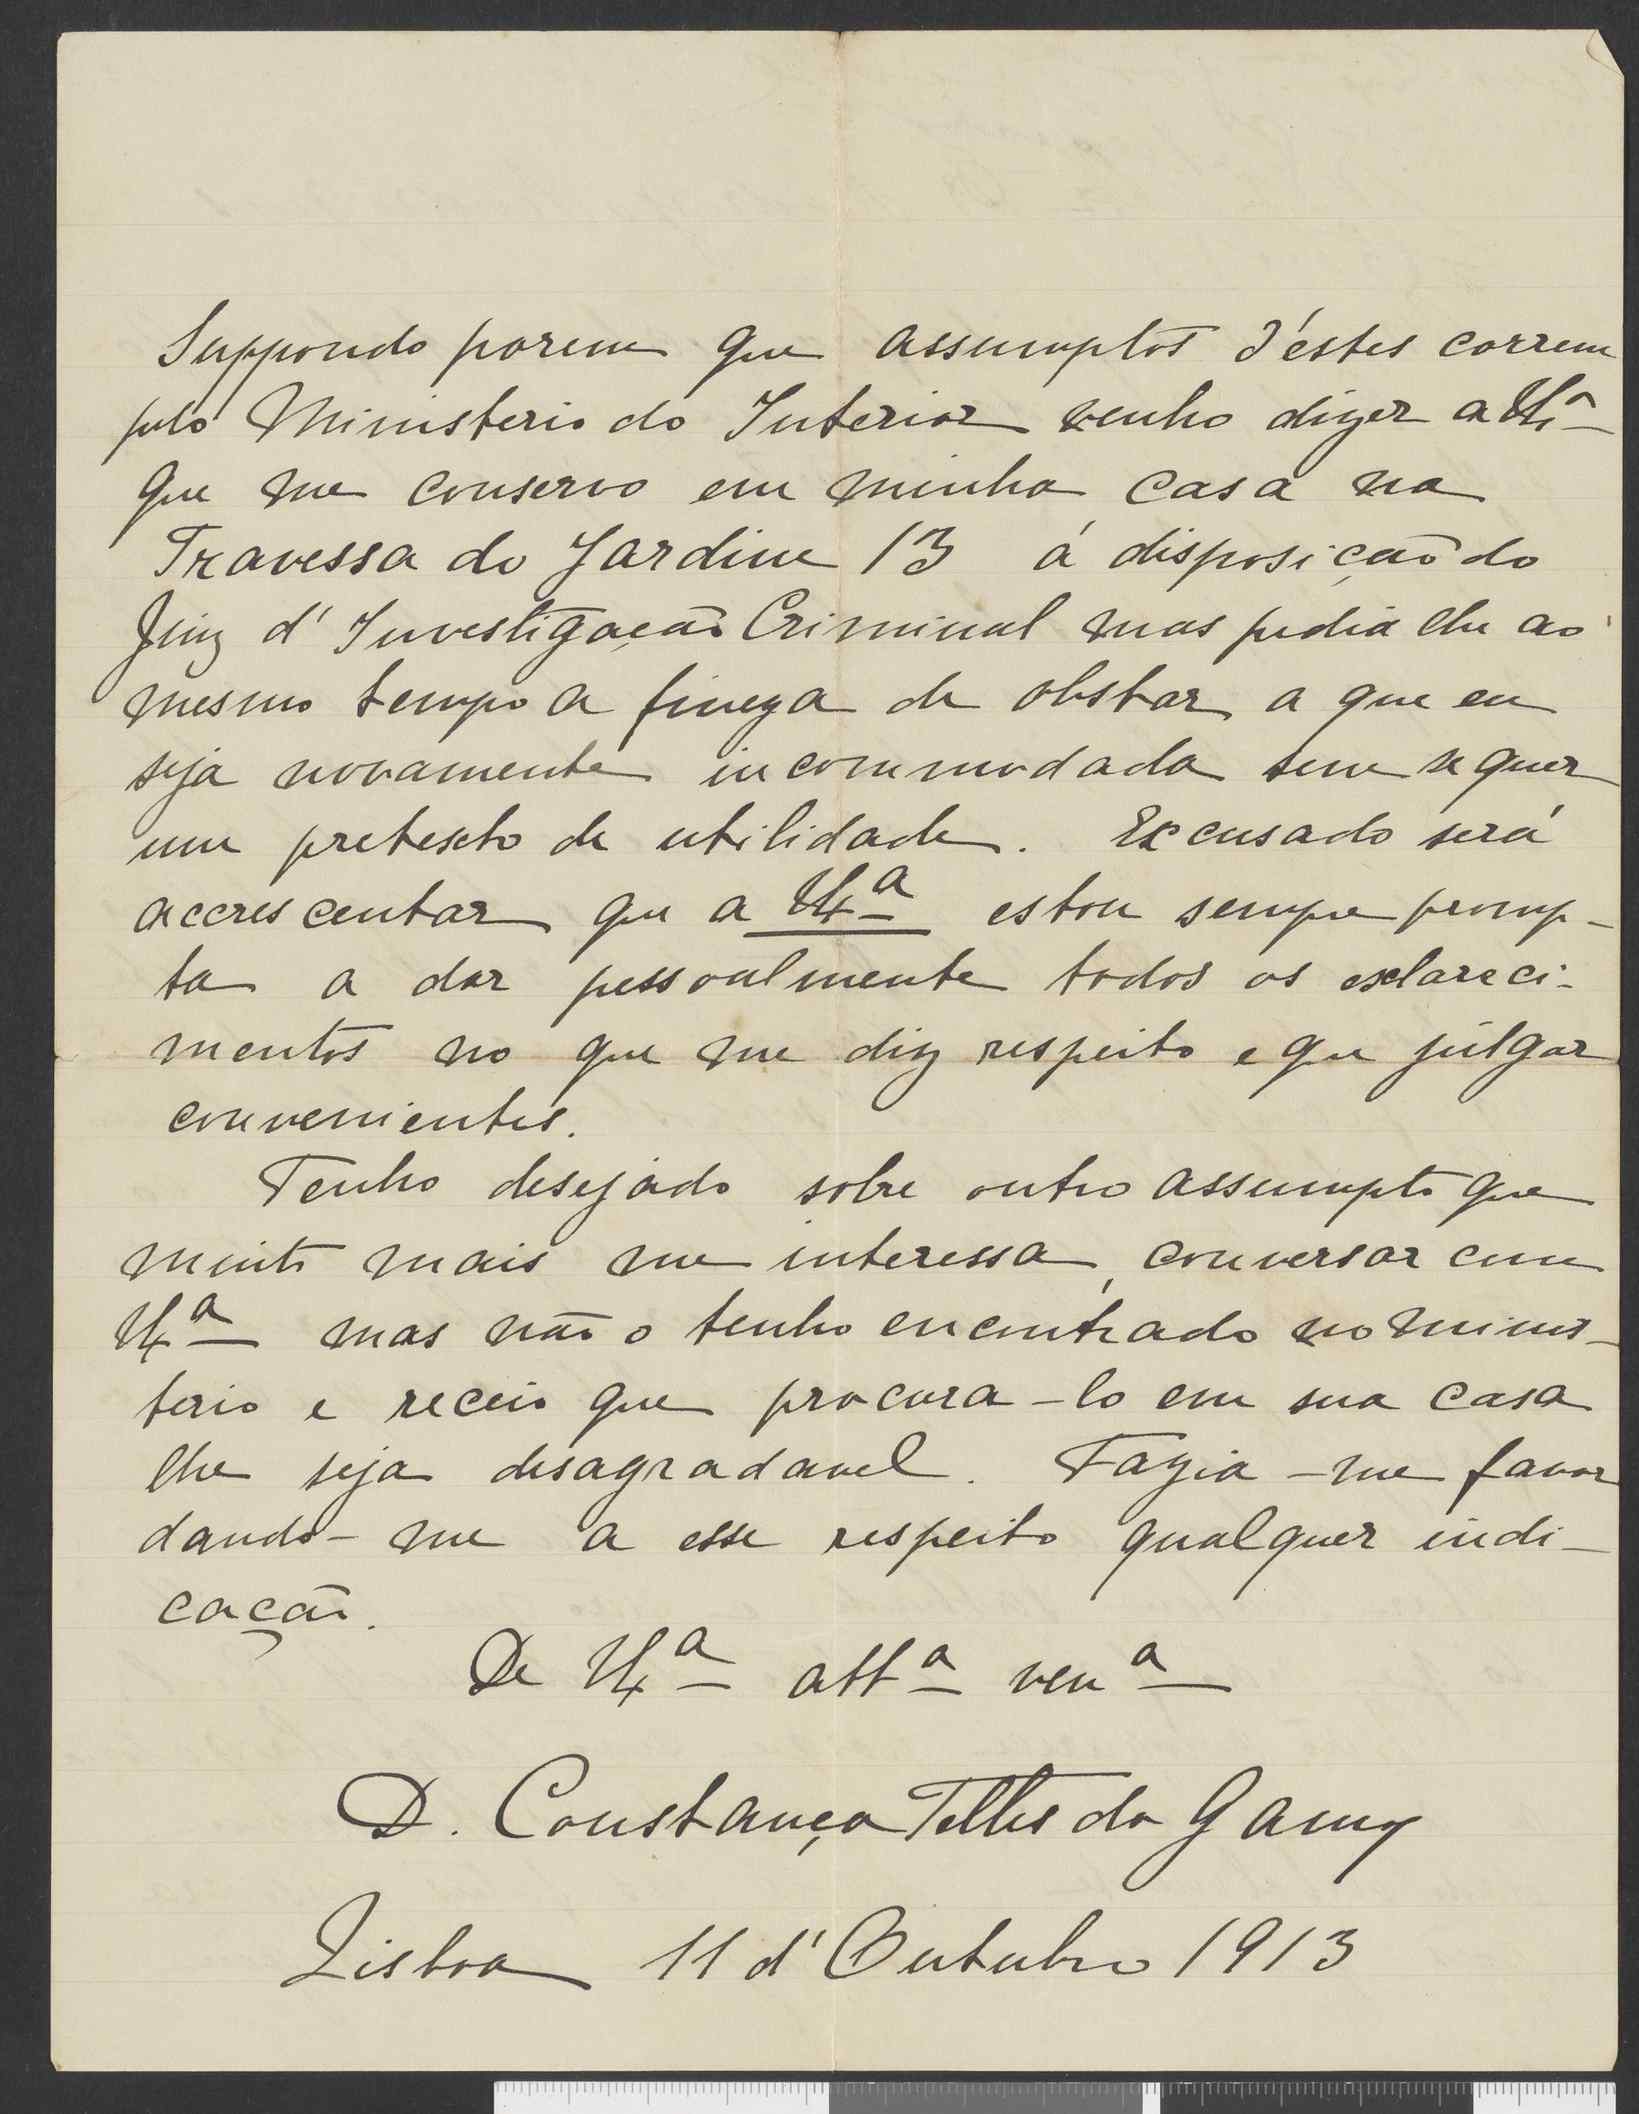 Suppondo porem que assumptos d'éstes correm
pelo Ministerio do Interior venho dizer a V.ª
que me conservo em minha casa na
Travessa do Jardim 13 á disposição do
Juiz d'Investigação Criminal mas pedia lhe ao
mesmo tempo a fineza de obstar a que eu
seja novamente incommodada sem se quer
um pretexto de utilidade. Excusado será
accrescentar que a V.ª estou sempre promp-
ta a dar pessoalmente todos os esclareci-
mentos no que me diz respeito e que julgar
convenientes.
Tenho desejado sobre outro assumpto que
muito mais me interessa, conversar com
V.ª mas não o tenho encontrado no minis-
terio e receio que procura-lo em sua casa
lhe seja desagradavel. Fazia-me favor
dando-me a esse respeito qualquer indi-
cação.
De V.ª att.ª ven.ª
D. Constança Telles da Gama
Lisboa 11 d'Outubro 1913